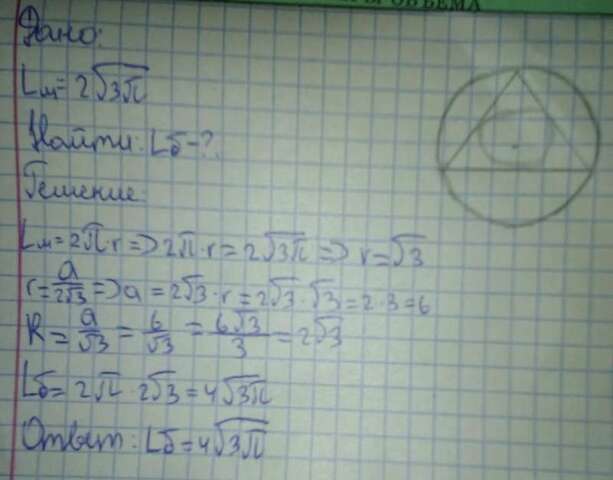 ОБЪЕМА
Дано:
Lм = 2√3π
Найти: Lб - ?
Решение:
Lм = 2π · r => 2π · r = 2√3π => r = √3
r = a/2√3 => a = 2√3 · r = 2√3 · √3 = 2 · 3 = 6
R = a/√3 = 6/√3 = 6√3/3 = 2√3
Lб = 2π · 2√3 = 4√3π
Ответ: Lб = 4√3π